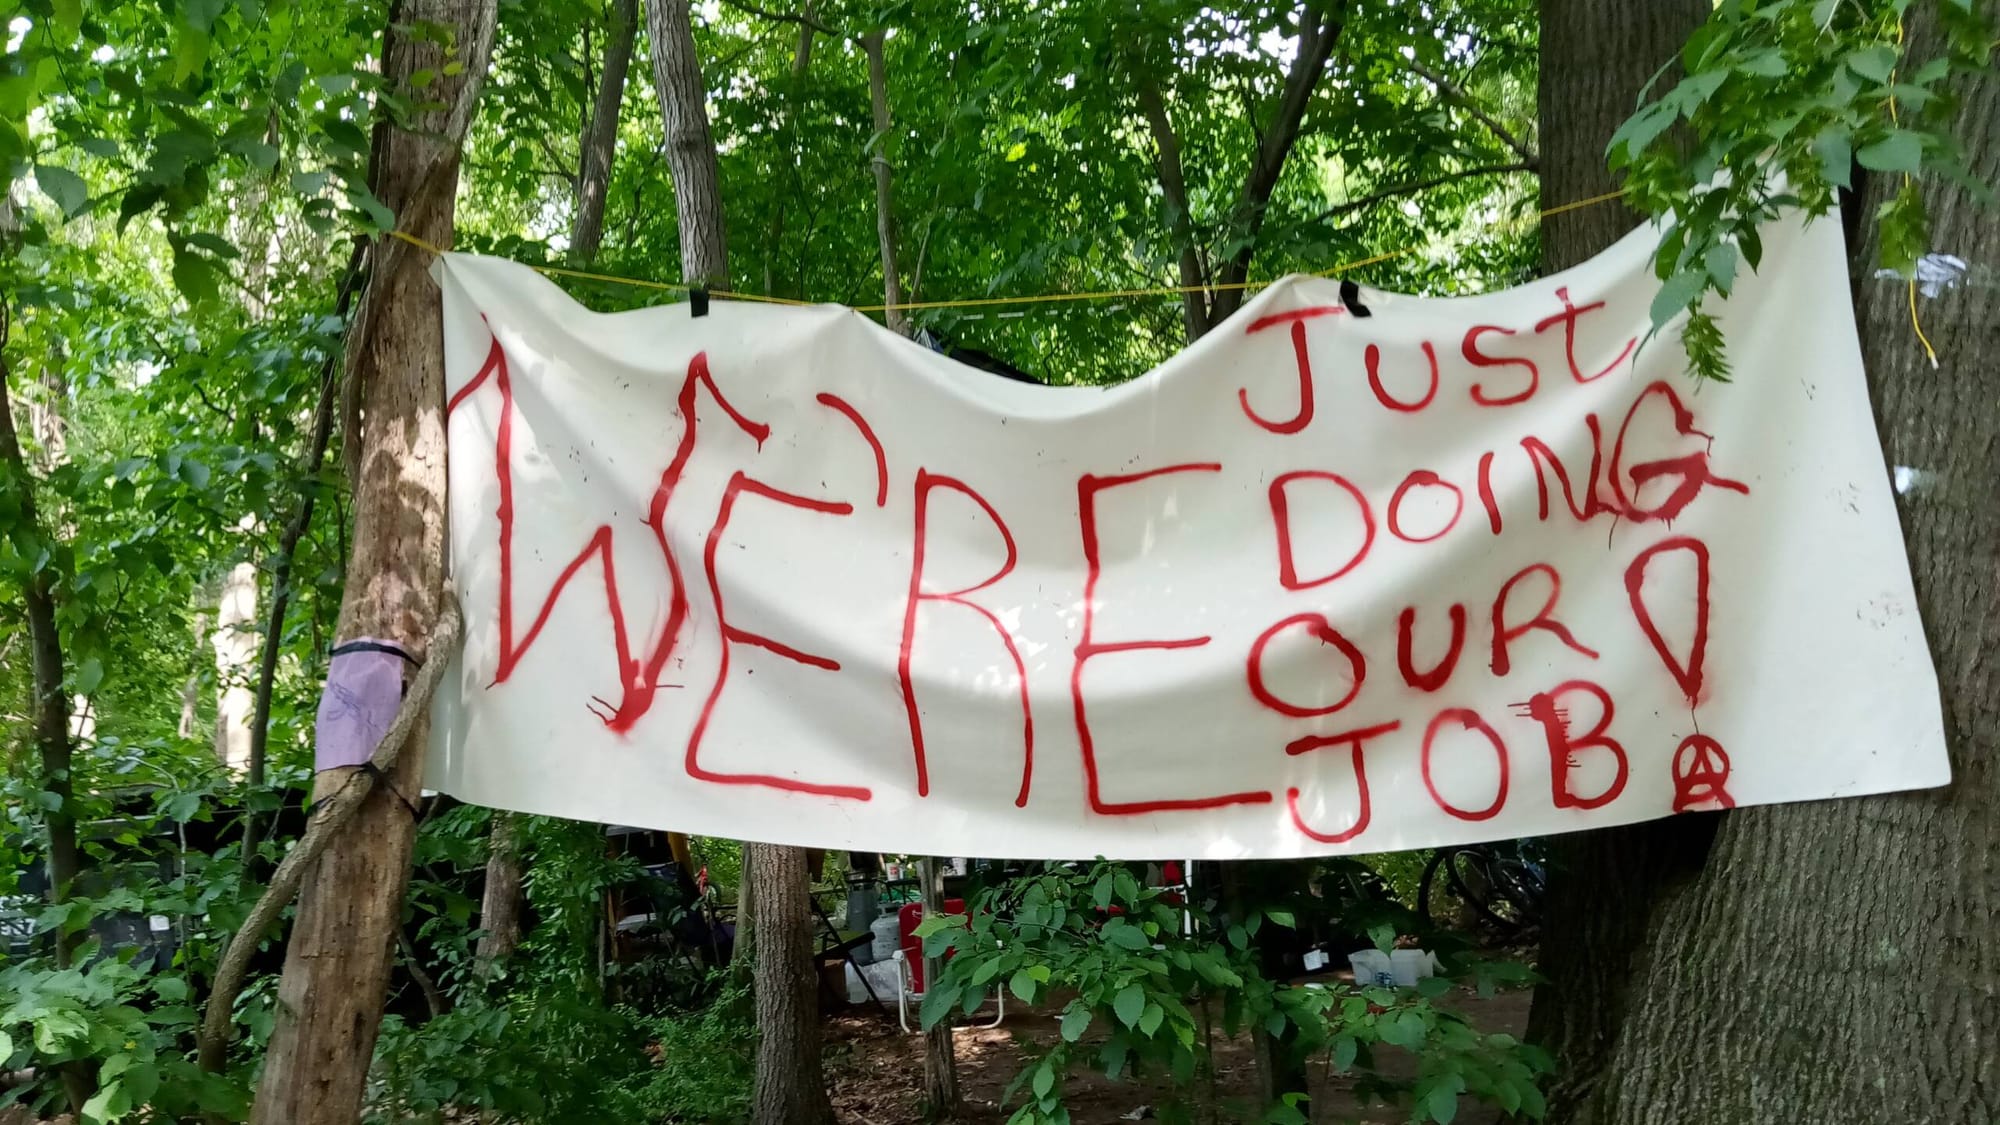 WE'RE
JUST
DOING
OUR
JOB!